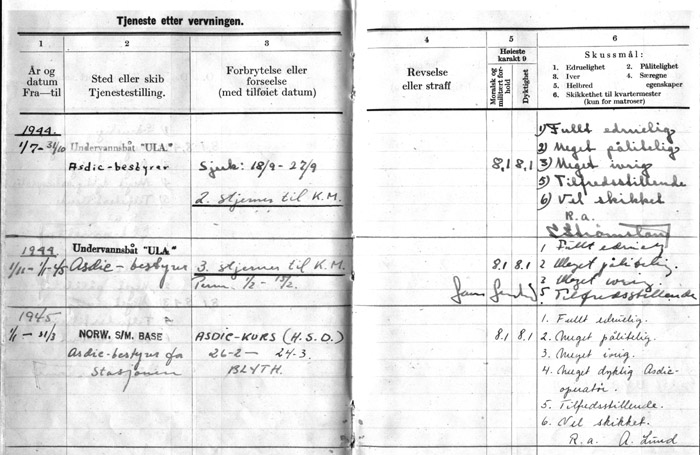 Tjeneste etter vervningen.
1
2
3
År og
datum
Fra—til
Sted eller skib
Tjenestestilling.
Forbrytelse eller
forseelse
(med tilføiet datum)
1944.
1/7- 31/10
Undervannsbåt "ULA."
Asdic-bestyrer
Sjuk: 18/9 - 27/9
2. stjernes til K.M.
1944
Undervannsbåt "ULA"
Asdic - bestyrer
3. stjernes til K.M.
Perm. 1/2 -
1945
1/1 - 31/3
NORW. S/M. BASE
Asdic-bestyrer for
Stasjonen
ASDIC-KURS (H.S.D.)
26-2 — 24-3.
BLYTH.
4
5
6
Revselse
eller straff
Høieste
karakt 9
Moralsk og
militært for-
hold
Dyktighet
Skussmål:
1. Edruelighet 2. Pålitelighet
3. Iver 4. Særegne
5. Helbred egenskaper
6. Skikkethet til kvartermester
(kun for matroser)
8,1 8,1
1) Fullt edruelig
2) Meget pålitelig
3) Meget ivrig
5) Tilfredsstillende
6) Vel skikket
R.a.
8.1 8.1
1 Fullt edruelig
2 Meget pålitelig.
3 Meget ivrig
5 Tilfredsstillende
8.1 8.1
1. Fullt edruelig.
2. Meget pålitelig.
3. Meget ivrig.
4. Meget dyktig Asdic-
operatør.
5. Tilfredsstillende.
6. Vel skikket.
R.a. A. Lund